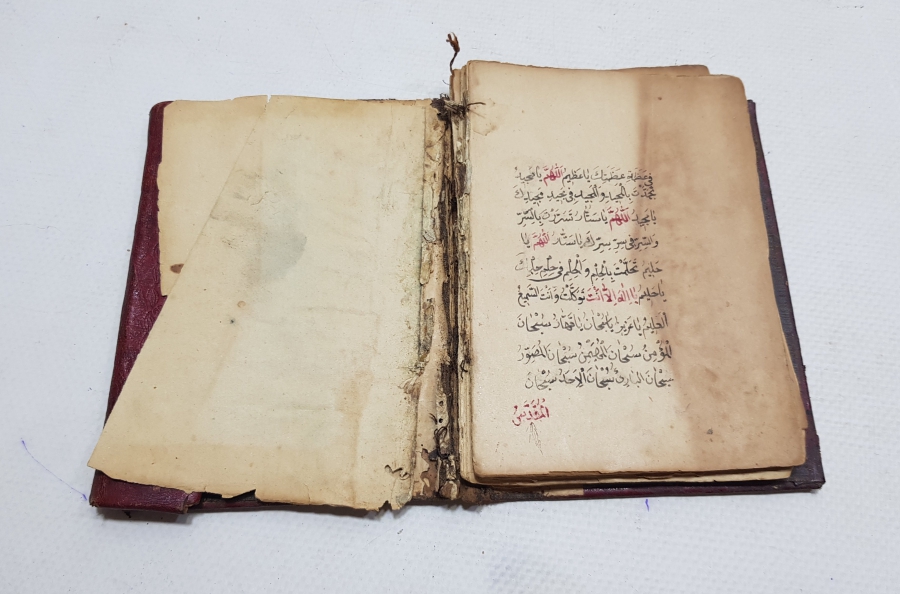 في عظمة عظمتك يا عظيم اللهم يا مجيد
تمجدت بالمجد والمجد في مجد مجدك
يا مجيد اللهم يا ستار تسترت بالستر
والستر في ستر سترك يا ستار اللهم يا
حليم تحلمت بالحلم والحلم في حلم حلمك
يا حليم يا الله الا انت توكلت وانت السميع
العليم يا عزيز يا قهار سبحان
المؤمن سبحان المهيمن سبحان المصور
سبحان الباري سبحان الاحد سبحان
المقدس